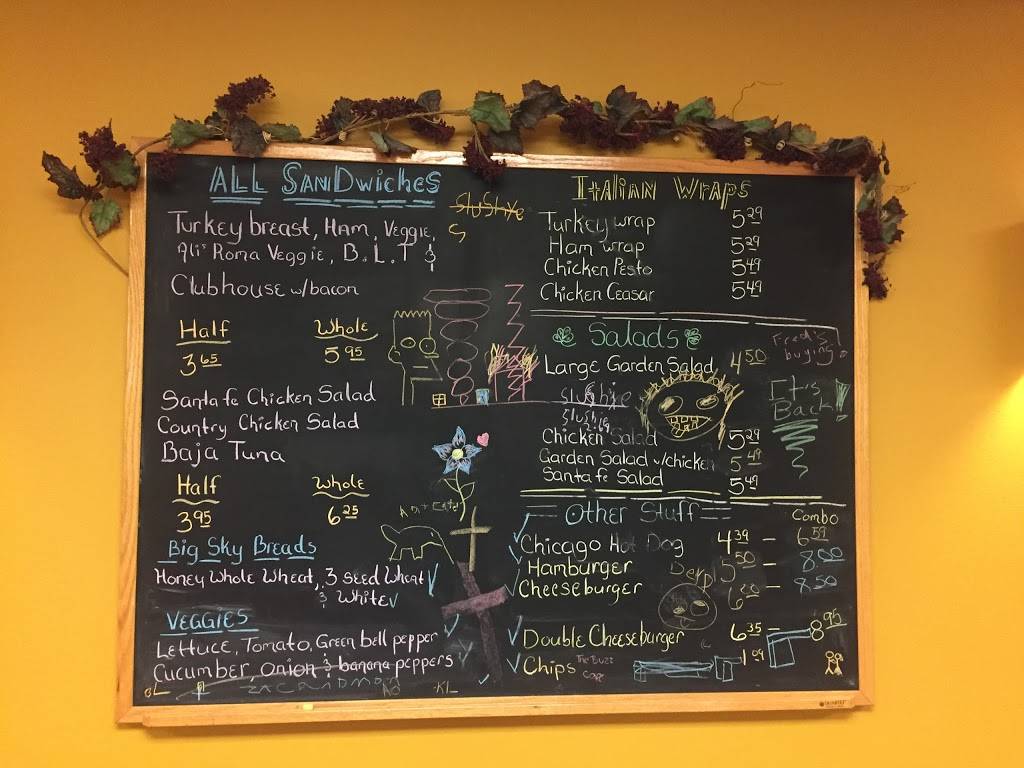 ALL SANDWiCHES
SluShye
S
Turkey breast, Ham, Veggie,
Ali' Roma Veggie, B.L.T &
Clubhouse w/bacon
Half Whole
3.65 5.95
Santa fe Chicken Salad
Country Chicken Salad
Baja Tuna
Half Whole
3.95 6.25
Big Sky Breads
Honey Whole Wheat, 3 Seed Wheat
& White
VEGGIES
Lettuce, Tomato, Green bell pepper
Cucumber, onion & banana peppers
Italian Wraps
Turkey wrap 5.29
Ham wrap 5.29
Chicken Pesto 5.49
Chicken Ceasar 5.49
Salads
Fred's buying
Large Garden Salad 4.50
It's
Back!
Slushie
Slushie
Chicken Salad 5.29
Garden Salad w/chicken 5.49
Santa fe Salad 5.49
Other Stuff
Combo
Chicago Hot Dog 4.39 - 6.59
Hamburger 5.50 - 8.00
Derp
Cheeseburger 6.50 - 8.50
Double Cheeseburger 6.35 - 8.95
Chips The Buzz Cafe 1.09